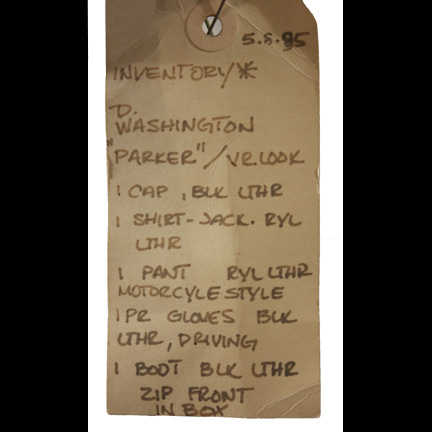 5.5.95
INVENTORY/*
D.
WASHINGTON
"PARKER"/VR.LOOK
1 CAP, BLK LTHR
1 SHIRT-JACK. RYL
LTHR
1 PANT RYL LTHR
MOTORCYLE STYLE
1 PR GLOVES BLK
LTHR, DRIVING
1 BOOT BLK LTHR
ZIP FRONT
IN BOX